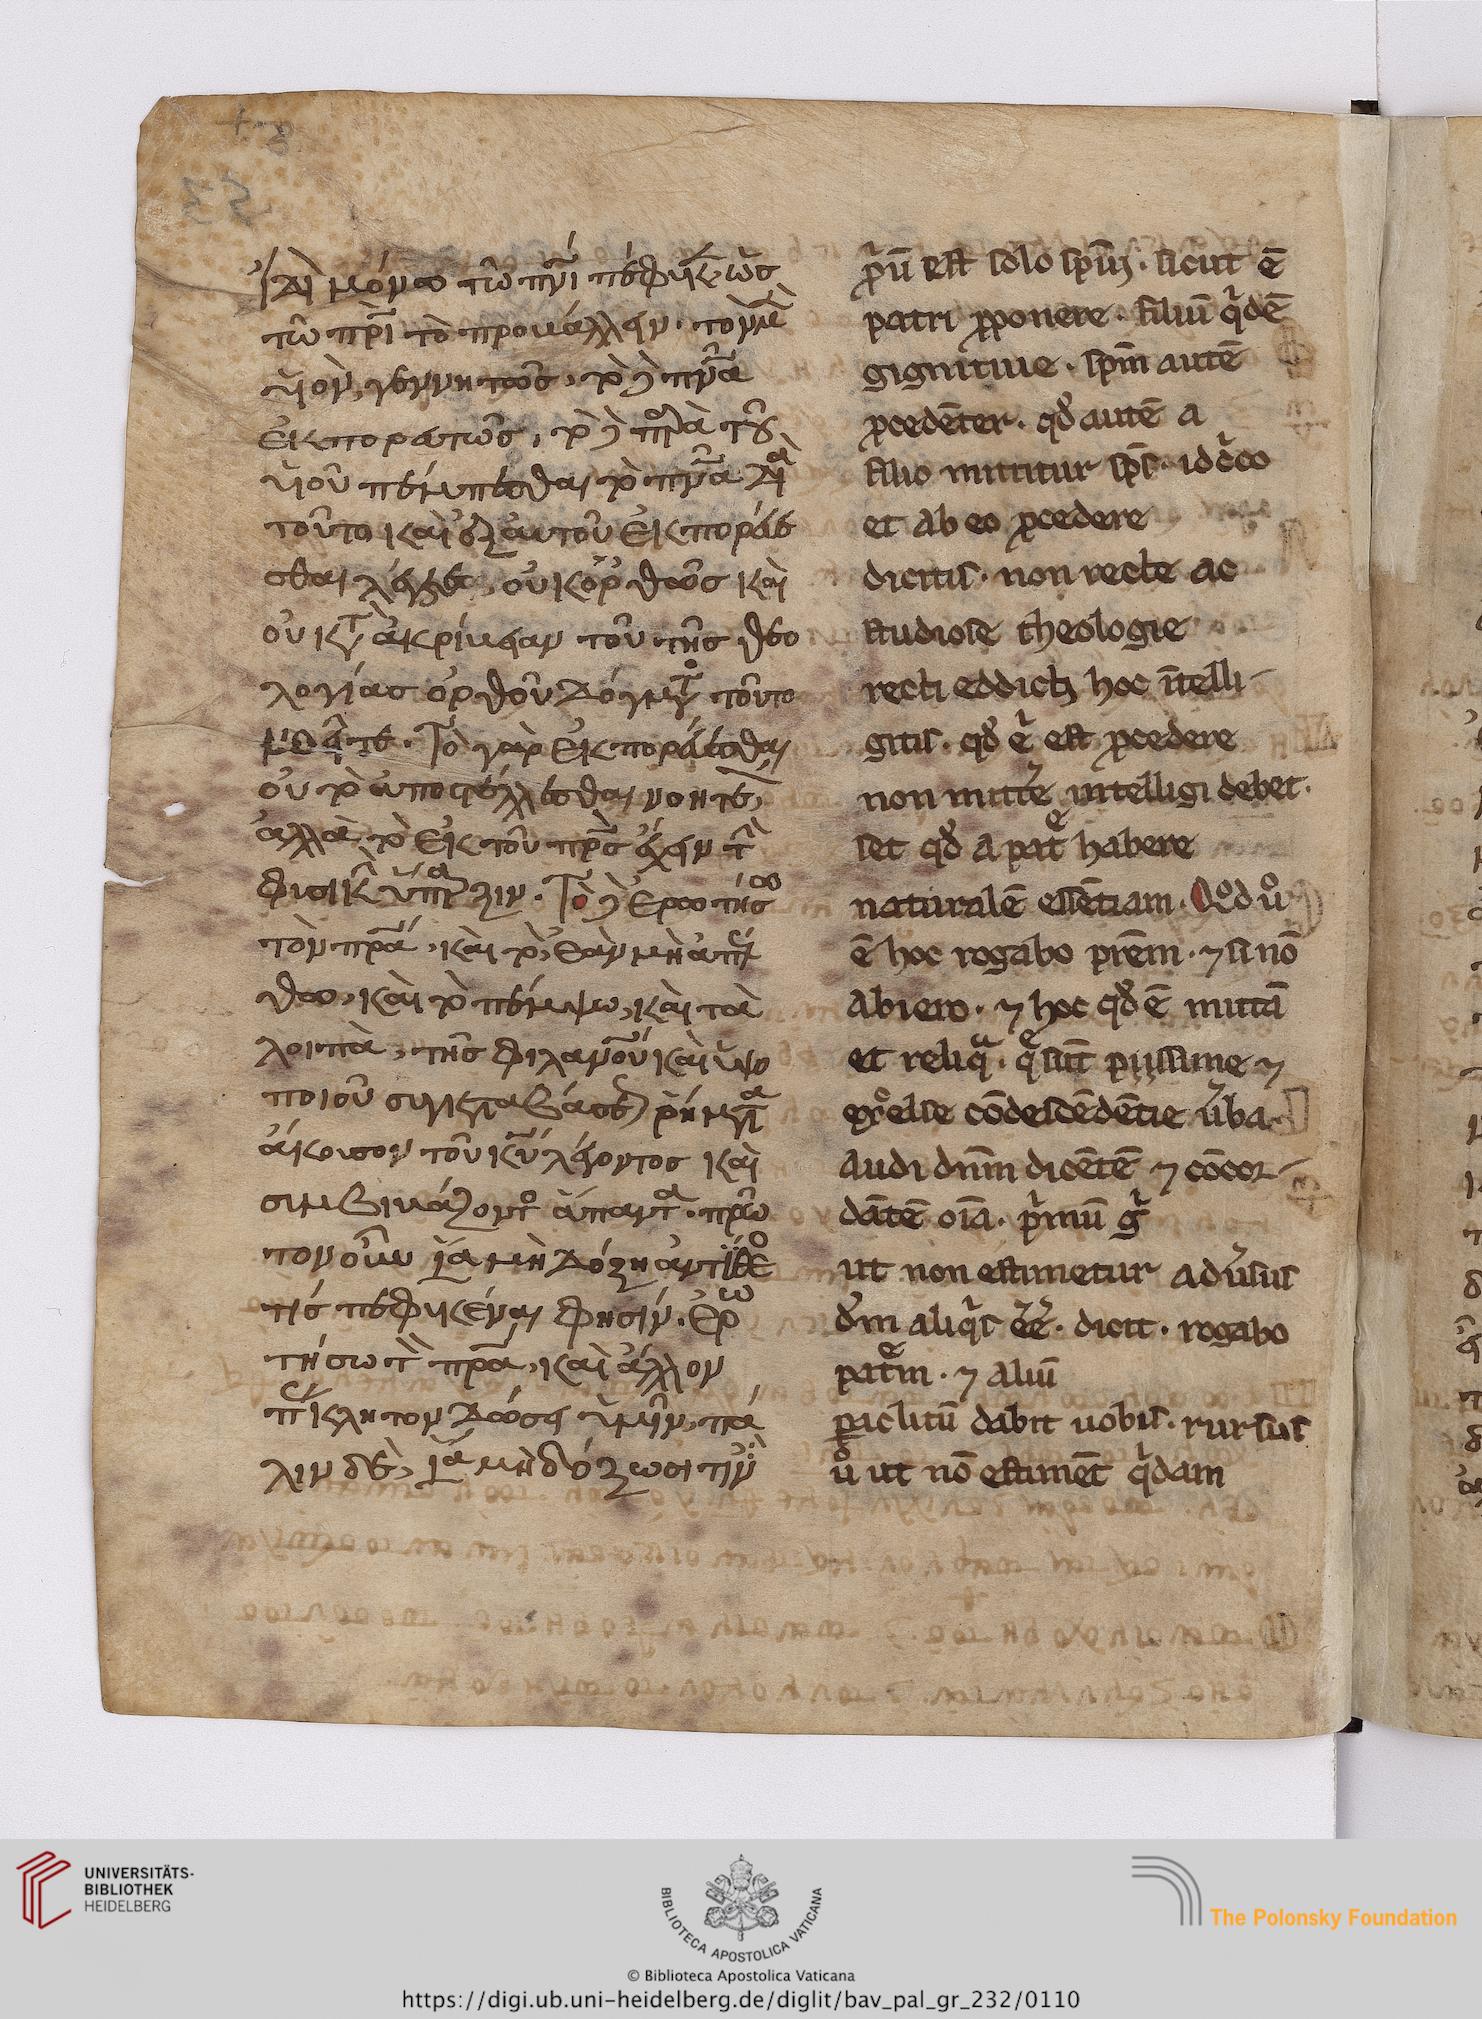 ἴδι μόνω τῶ πνι πέφυκεν ὡς
τῶ πρι τὸ προβάλλειν· τὸν μὲν
υἱὸν, γεννητῶς, τὸ δὲ πνα
ἐκπορευτῶς, τὸ δὲ παρὰ τοῦ
υἱοῦ πέμπεσθαι τὸ πνα διὰ
τοῦτο καὶ ἐξ αὐτοῦ ἐκπορεύε
σθαι λέγετε, οὐκ ὀρθῶς καὶ
οὐ κατ ἀκρίβειαν τοῦ τῆς θεο
λογίας ὀρθοῦ δόγματος τοῦτο
νοεῖτε. Τὸ γὰρ ἐκπορεύεσθαι
οὐ τὸ ἀποστέλλεσθαι νοητέον,
ἀλλὰ τὸ ἐκ τοῦ πρς ἔχειν τὴν
φυσικὴν ὕπαρξιν. Τὸ δὲ ἐρωτήσω
τὸν πρα, καὶ τὸ, ἐὰν μὴ ἀπέλ
θω, καὶ τὸ πέμψω, καὶ τὰ
λοιπὰ, τῆς φιλανου καὶ ὑψο
ποιοῦ συγκαταβάσεως ῥήματα
ἄκουσον τοῦ κυ λέγοντος καὶ
συμβιβάζοντος ἅπαντα. πρῶ
τον οὖν ἵνα μὴ δόξη ἀντίθεο
τις πεφυκέναι φησίν. Ἐρω
τήσω τὸν πρα, καὶ ἄλλον
παράκλητον δώσει ὑμῖν, πά
λιν δὲ, ἵνα μὴ δόξωσι τινὲς
priu est solo spiui. sicut e
patri pponere. filiu qide
gignitiue. spm aute
pcedenter. qd aute a
filio mittitur sps. idcirco
et ab eo pcedere
dicitis. non recte ac
studiose theologie
recti eddicti hoc intelli-
gitis. qd eni est pcedere
non mitte intelligi debet.
set qd a patre habere
naturale essentiam. Quod uo
e hoc rogabo prem. ⁊ si no
abiero. ⁊ hoc qd e mittā
et reliqua. que sut piissime ⁊
excelse condescendentie uba.
audi dnm dicentē ⁊ concor-
dātē oia. primu g
ut non estimetur aduersus
dm aliqis eē. dicit. rogabo
patrem. ⁊ aliu
paclitu dabit uobis. rursus
uo ut no estiment qidam
UNIVERSITÄTS-
BIBLIOTHEK
HEIDELBERG
BIBLIOTECA APOSTOLICA VATICANA
© Biblioteca Apostolica Vaticana
The Polonsky Foundation
https://digi.ub.uni-heidelberg.de/diglit/bav_pal_gr_232/0110